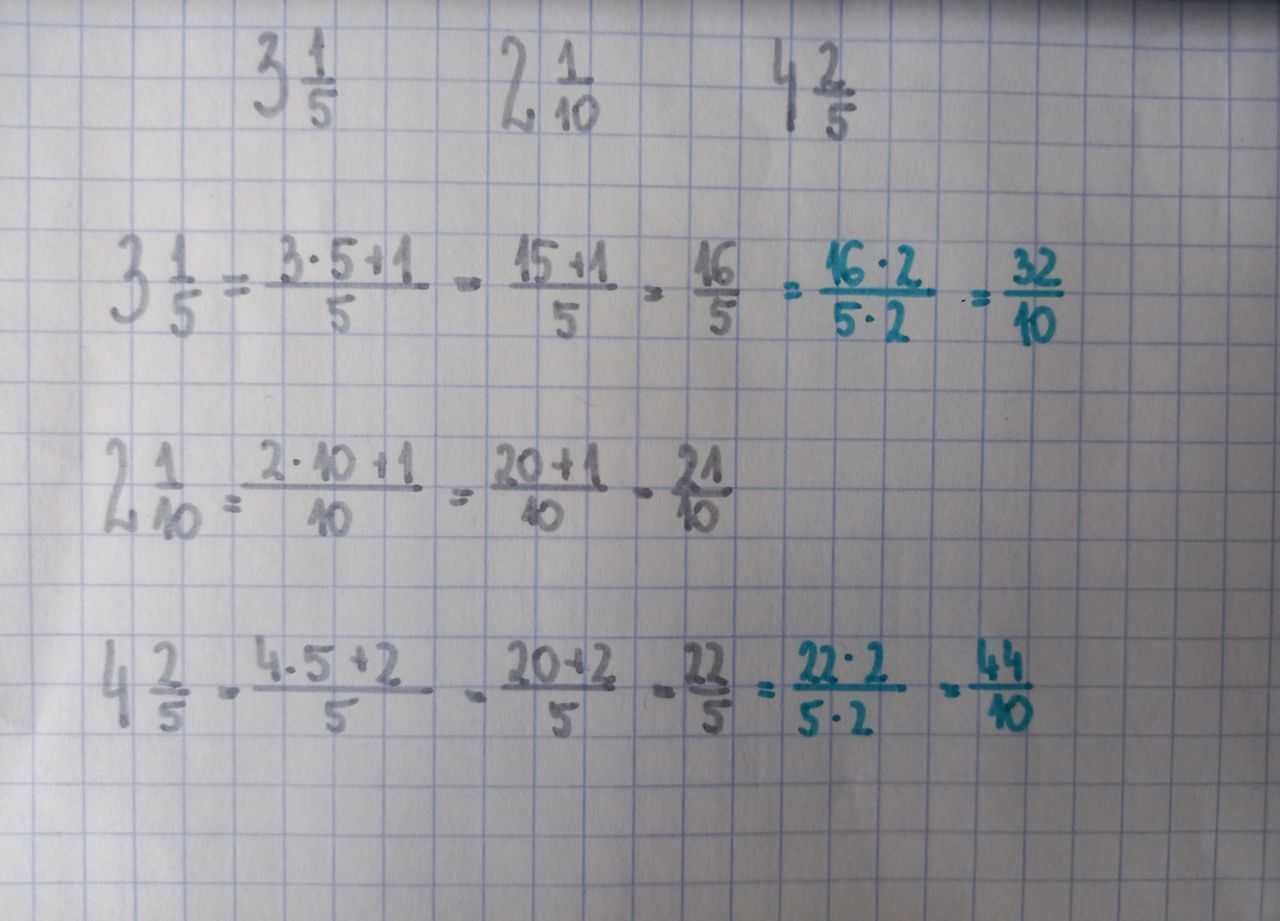 3 1/5 2 1/10 4 2/5
3 1/5 = (3·5+1)/5 = (15+1)/5 = 16/5 = (16·2)/(5·2) = 32/10
2 1/10 = (2·10+1)/10 = (20+1)/10 = 21/10
4 2/5 = (4·5+2)/5 = (20+2)/5 = 22/5 = (22·2)/(5·2) = 44/10